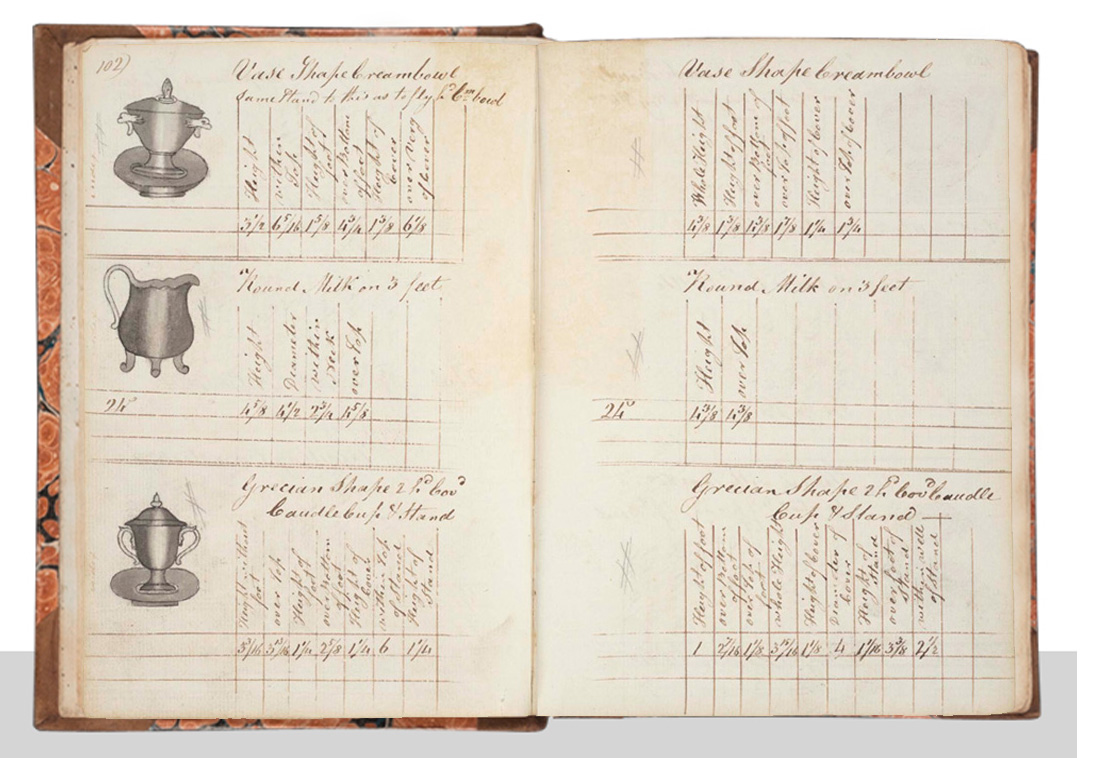 102)
Vase Shape Creambowl
Same Stand to this as to fly hd Cm bowl
Height
within Top
Height of foot
over Bottom of foot
Height of Cover
over Verg of Cover
3 1/2 6 5/16 1 5/8 1 3/8 6 1/8
Round Milk on 3 feet
Height
Diameter
within Neck
over Top
24
4 5/8 4 1/2 2 3/4 4 5/8
Grecian Shape 2 hd Covd
Caudle Cup & Stand
Height without foot
over Top
Height of foot
over Bottom of foot
Height of Cover
within Top of Stand
Height of Stand
1 1/4 2 5/8 1 1/4 6 1 1/4
Vase Shape Creambowl
Whole Height
Height of foot
over Bottom of foot
over Top of foot
Height of Cover
over Top of Cover
1 7/8 1 1/4 1 3/4
Round Milk on 3 feet
Height
over Top
24
4 3/8 4 3/8
Grecian Shape 2 hd Covd Caudle
Cup & Stand
Height of foot
over Bottom of foot
over Top of foot
whole Height
Height of Cover
Diameter of Cover
Height of Stand
over foot of Stand
within well of Stand
1 2 7/16 1 1/8 3 15/16 1 1/8 4 1 1/16 3 3/8 2 1/2